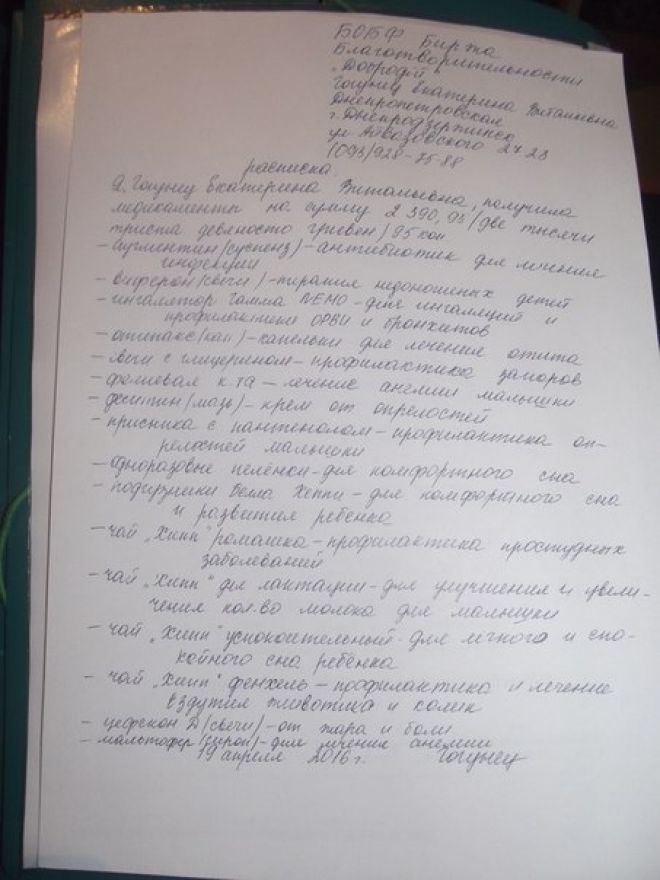 БОБФ Биржа
Благотворительности
"Добродій"
Екатерина Витальевна
Днепропетровская
г. Днепродзержинск
ул. Айвазовского 24 23
(093)928-75-88
расписка.
Я, Екатерина Витальевна, получила
медикаменты на сумму 2 390,95/две тысячи
триста девяносто гривен/95 коп
- аугментин/суспенз)-антибиотик для лечения
инфекции
- виферон/свечи)-терапия недоношеных детей
- ингалятор гамма NEMO-для ингаляций и
профилактики ОРВИ и бронхитов
- отипакс/кап)-капельки для лечения отита
- свечи с глицерином-профилактика запоров
- фолиевая к-та-лечение анемии малышки
- деситин/мазь)-крем от опрелостей
- присыпка с пантенолом-профилактика оп-
релостей малышки
- одноразовые пелёнки-для комфортного сна
- подгузники Белла Хеппи-для комфортного сна
и развития ребенка
- чай "Хипп" ромашка-профилактика простудных
заболеваний
- чай "Хипп" для лактации-для улучшения и увели-
чения кол-во молока для малышки
- чай "Хипп" успокоительный-для лёгкого и спо-
койного сна ребёнка
- чай "Хипп" фенхель-профилактика и лечение
вздутия животика и колик
- цефекон Д/свечи)-от жара и боли
- мальтофер/сироп)-для лечения анемии
19 апреля 2016 г.